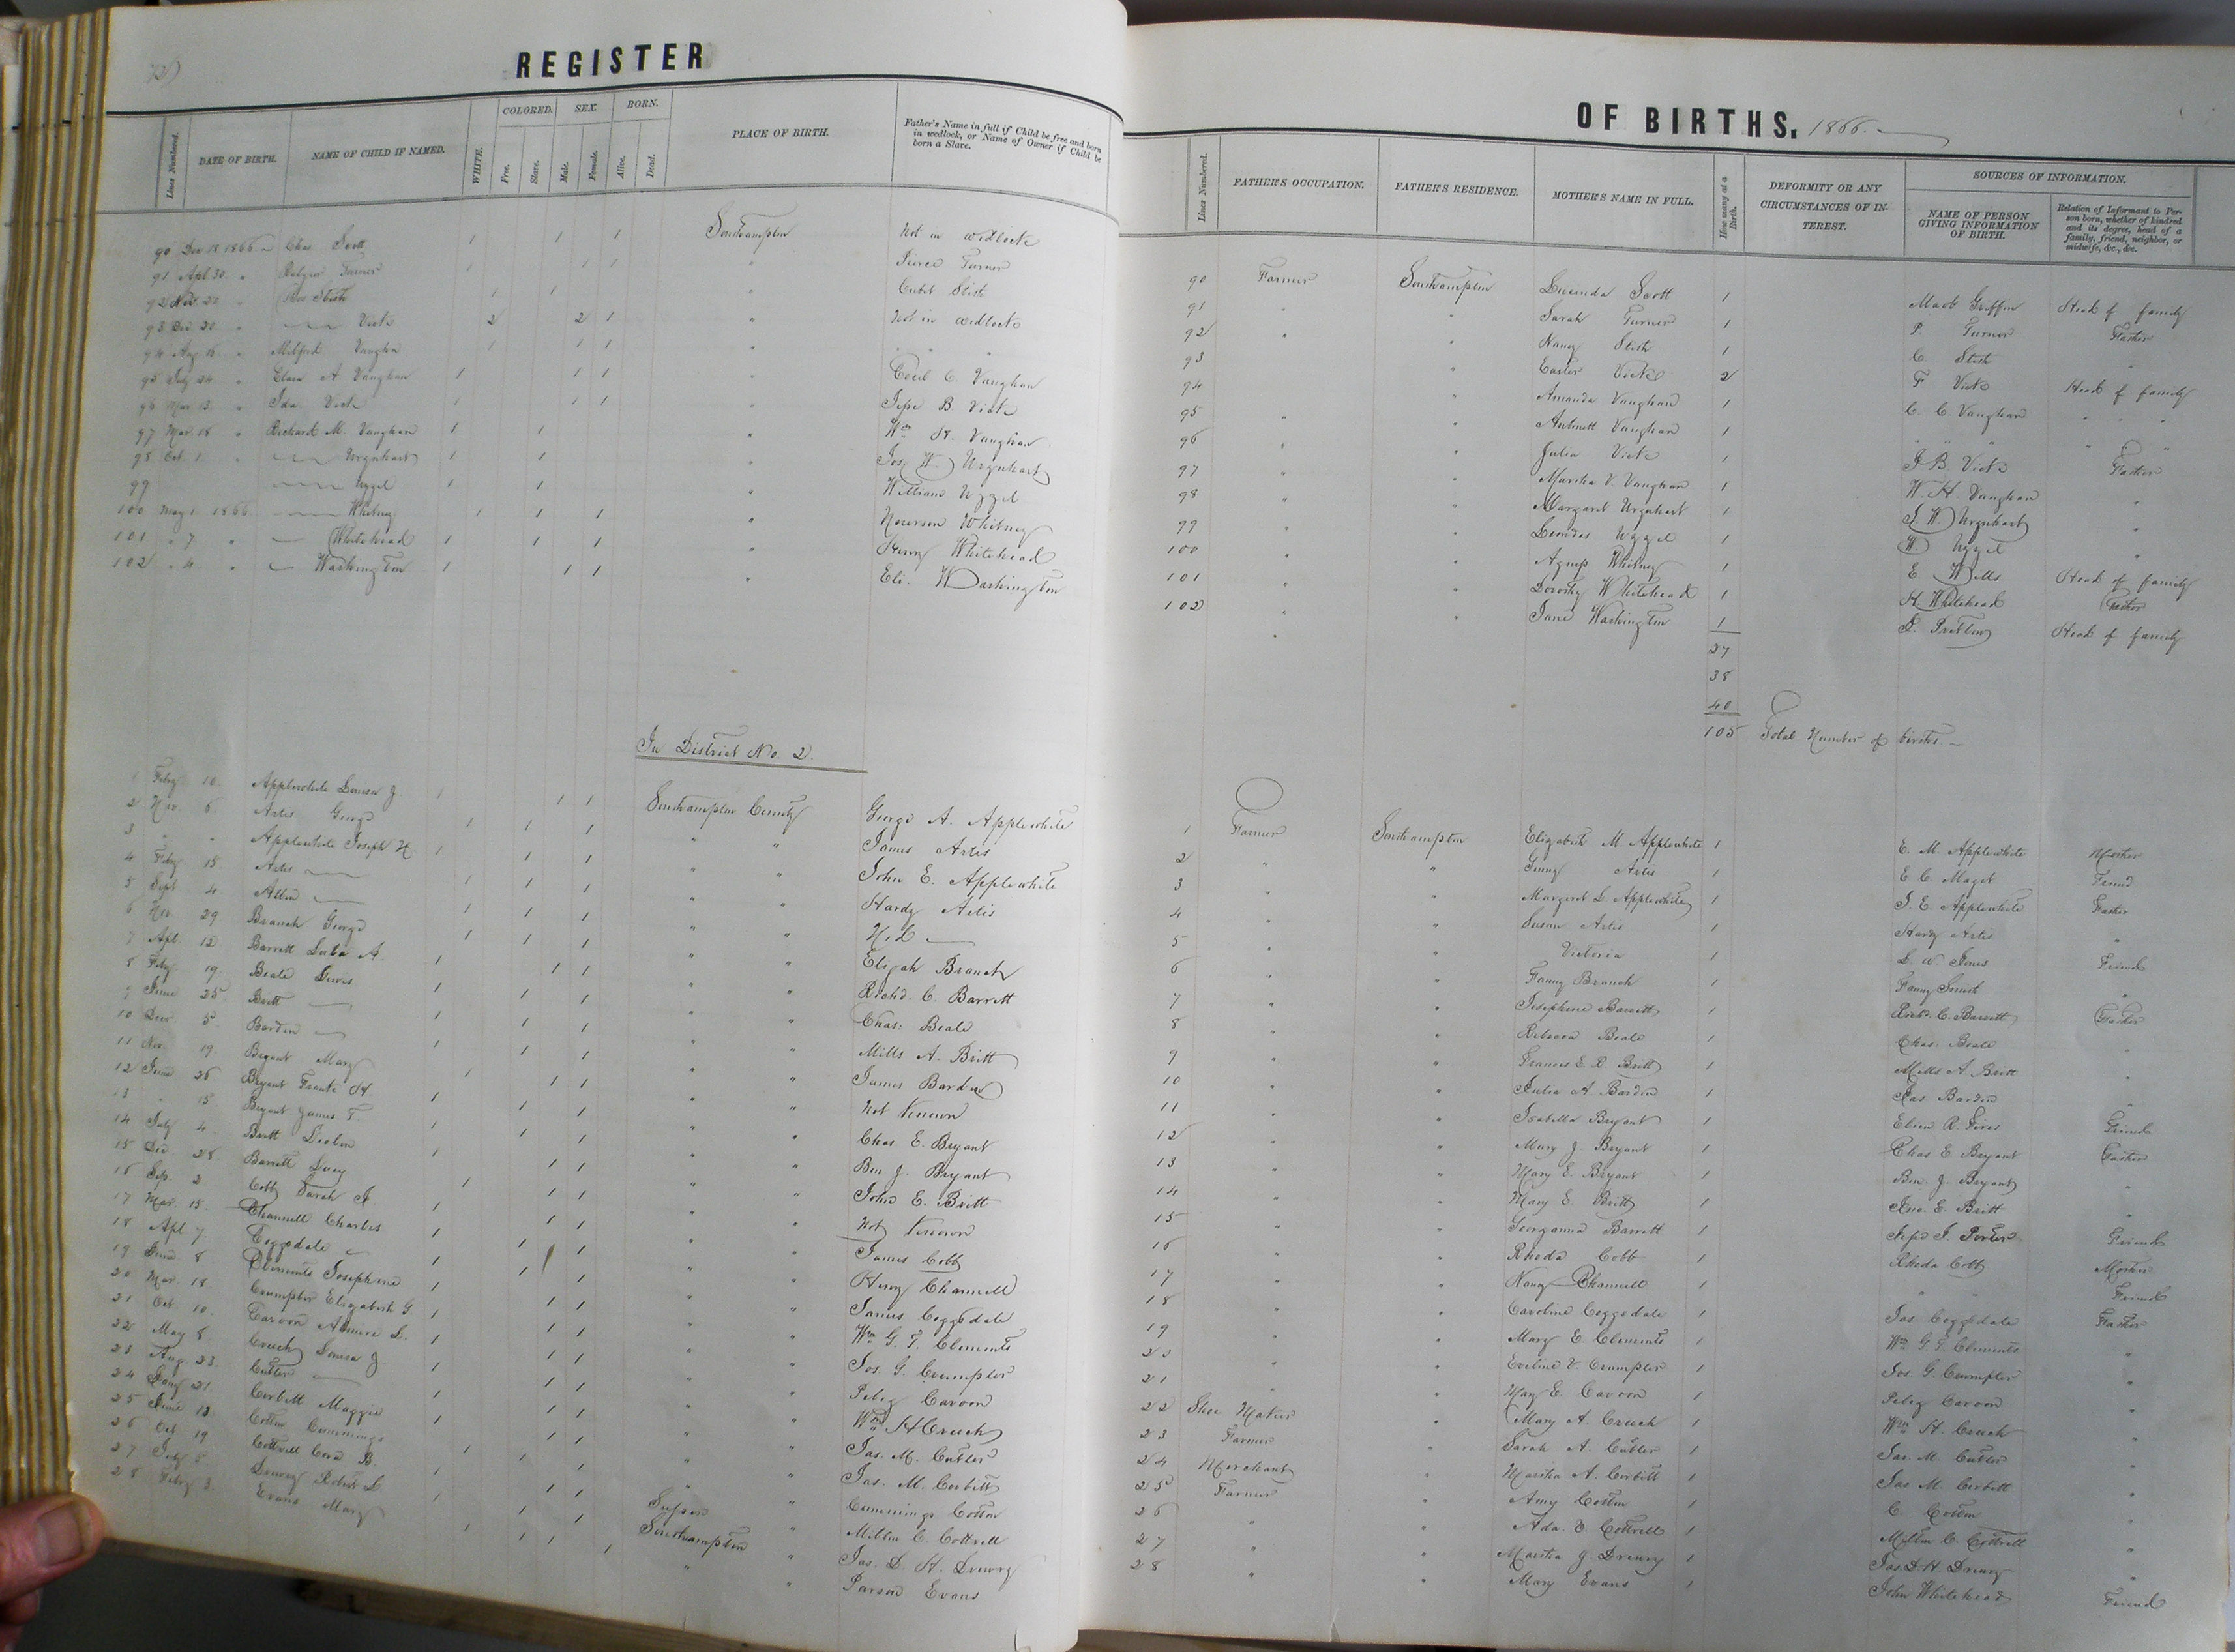 REGISTER
Lines Numbered. DATE OF BIRTH. NAME OF CHILD IF NAMED. WHITE. COLORED. Free. Slave. SEX. Male. Female. BORN. Alive. Dead. PLACE OF BIRTH. Father's Name in full if Child be free and born in wedlock, or Name of Owner if Child be born a Slave.
90 Dec 18 1866 Chas. Scott 1 1 1 Southampton Not in wedlock
91 Apl 30 " Turner 1 1 1 " Pierce Turner
92 Nov. 20 " Stith 1 1 " Stith
93 Dec. 20 " Vick 2 2 1 " Not in wedlock
94 Aug. " Vaughn 1 1 1 " " "
95 July 24 " A. Vaughan 1 1 1 " Cecil C. Vaughan
96 Mar 13 " Ida Vick 1 1 1 " Jesse B. Vick
97 Mar. 18 " Richard M. Vaughan 1 1 " Wm H. Vaughan
98 Oct. 1 " Urquhart 1 1 " Jos. W. Urquhart
99 Uzzel 1 " William Uzzel
100 May 1 1866 Whitney 1 1 1 " Whitney
101 " 7 " Whitehead 1 1 1 " Henry Whitehead
102 " 4 " Washington 1 1 1 " Eli. Washington
In District No. 2.
1 Feby 10 Applewhite Louisa J 1 1 1 Southampton County George A. Applewhite
2 Nov. 6 Artis George 1 1 1 " " James Artis
3 " " Applewhite Joseph 1 1 1 " " John E. Applewhite
4 Feby 15 Artis 1 1 1 " " Hardy Artis
5 Sept 4 1 1 1 " "
6 Nov 29 Branch George 1 1 1 " " Elijah Branch
7 Apl 12 Barrett A. 1 1 1 " " Richd. C. Barrett
8 Feby 19 Beale 1 1 1 " " Chas. Beale
9 June 25 Britt 1 1 1 " " Mills A. Britt
10 Decr. 5 Barden 1 1 1 " " James Barden
11 Nov. 19 Bryant Mary 1 1 1 " " Not Known
12 June 26 Bryant H. 1 1 1 " " Chas. E. Bryant
13 " 15 Bryant James T 1 1 1 " " Ben. J. Bryant
14 July 4 Britt 1 1 1 " " John E. Britt
15 Dec 28 Barrett Lucy 1 1 1 " " Not Known
16 Sep. 2 Cobb Sarah 1 1 1 " " James Cobb
17 Mar. 15 Channell Charles 1 1 1 " " Henry Channell
18 Apl 7 Coggsdale 1 1 1 " " James Coggsdale
19 June 8 Clements Josephine 1 1 1 " " Wm G. T. Clements
20 Mar. 18 Crumpler Elizabeth G 1 1 1 " " Jos. G. Crumpler
21 Oct. 10 Caroon L. 1 1 1 " " Caroon
22 May 8 Louisa J 1 1 1 " " Wm H
23 Aug. 23 Cutler 1 1 1 " " Jas. M. Cutler
24 Jany 21 Corbitt Maggie 1 1 1 " " Jas. M. Corbitt
25 June 13 Cotton Cummings 1 1 1 " " Cummings Cotton
26 Oct 19 Cottrell Cora B. 1 1 1 Cottrell
27 July 5 Drewry Robert L 1 1 1 Southampton " Jas. D. H. Drewry
28 Feby 3 Evans Mary 1 1 1 " " Evans
OF BIRTHS. 1866.
Lines Numbered. FATHER'S OCCUPATION. FATHER'S RESIDENCE. MOTHER'S NAME IN FULL. How many at a Birth. DEFORMITY OR ANY CIRCUMSTANCES OF INTEREST. SOURCES OF INFORMATION. NAME OF PERSON GIVING INFORMATION OF BIRTH. Relation of Informant to Person born, whether of kindred and its degree, head of a family, friend, neighbor, or midwife, &c., &c.
90 Farmer Southampton Lucinda Scott 1 Griffin Head of family
91 " " Sarah Turner 1 P. Turner Father
92 " " Nancy Stith 1 C. Stith "
93 " Easter Vick 2 F Vick Head of family
94 " Amanda Vaughan 1 C. C. Vaughan " "
95 " " Vaughan 1 " " " " "
96 " " Julia Vick 1 J. B. Vick Father
97 " " Martha V. Vaughan 1 W. H. Vaughan "
98 " " Margaret Urquhart 1 J. W. Urquhart "
99 " " Uzzel 1 W. Uzzel "
100 " " Whitney 1 E Wells Head of family
101 " " Dorothy Whitehead 1 H Whitehead Father
102 " " Jane Washington 1 Head of family
27
38
40
105 Total Number of births
1 Farmer Southampton Elizabeth M. Applewhite 1 E. M. Applewhite Mother
2 " " Artis 1 E C. Friend
3 " " Margaret L. Applewhite 1 J. E. Applewhite Father
4 " " Susan Artis 1 Hardy Artis "
5 " " Victoria 1 Friend
6 " " Fanny Branch 1 Fanny "
7 " " Josephine Barrett 1 Richd. C. Barrett Father
8 " " Rebecca Beale 1 Chas. Beale "
9 " " Frances E. R. Britt 1 Mills A. Britt "
10 " " Julia A. Barden 1 Jas. Barden "
11 " " Isabella Bryant 1 Friend
12 " " Mary J. Bryant 1 Chas E. Bryant Father
13 " " Mary E. Bryant 1 Ben. J. Bryant "
14 " " Mary E. Britt 1 Jno. E. Britt "
15 " " Georganna Barrett 1 Porter Friend
16 " " Rhoda Cobb 1 Rhoda Cobb Mother
17 " " Nancy Channell 1 " " Friend
18 " " Caroline Coggsdale 1 Jas. Coggsdale Father
19 " " Mary E. Clements 1 Wm G. T. Clements "
20 " " Eveline V. Crumpler 1 Jos. G. Crumpler "
21 " " Mary E. Caroon 1 Caroon "
22 Shoe Maker " Mary A. 1 Wm H. "
23 Farmer " Sarah A. Cutler 1 Jas. M. Cutler "
24 Merchant " Martha A. Corbitt 1 Jas M. Corbitt "
25 Farmer " Amy Cotton 1 C. Cotton "
26 " " Ada. Cottrell 1 Cottrell "
27 " " Martha J. Drewry 1 Jas D. H. Drewry "
28 " " Mary Evans 1 John Whitehead Friend